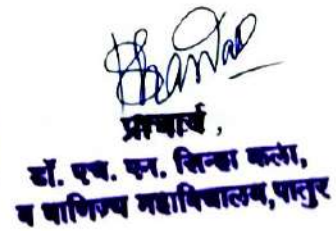 प्राचार्य,
डॉ. एच. एन. सिन्हा कला,
व वाणिज्य महाविद्यालय,पातुर